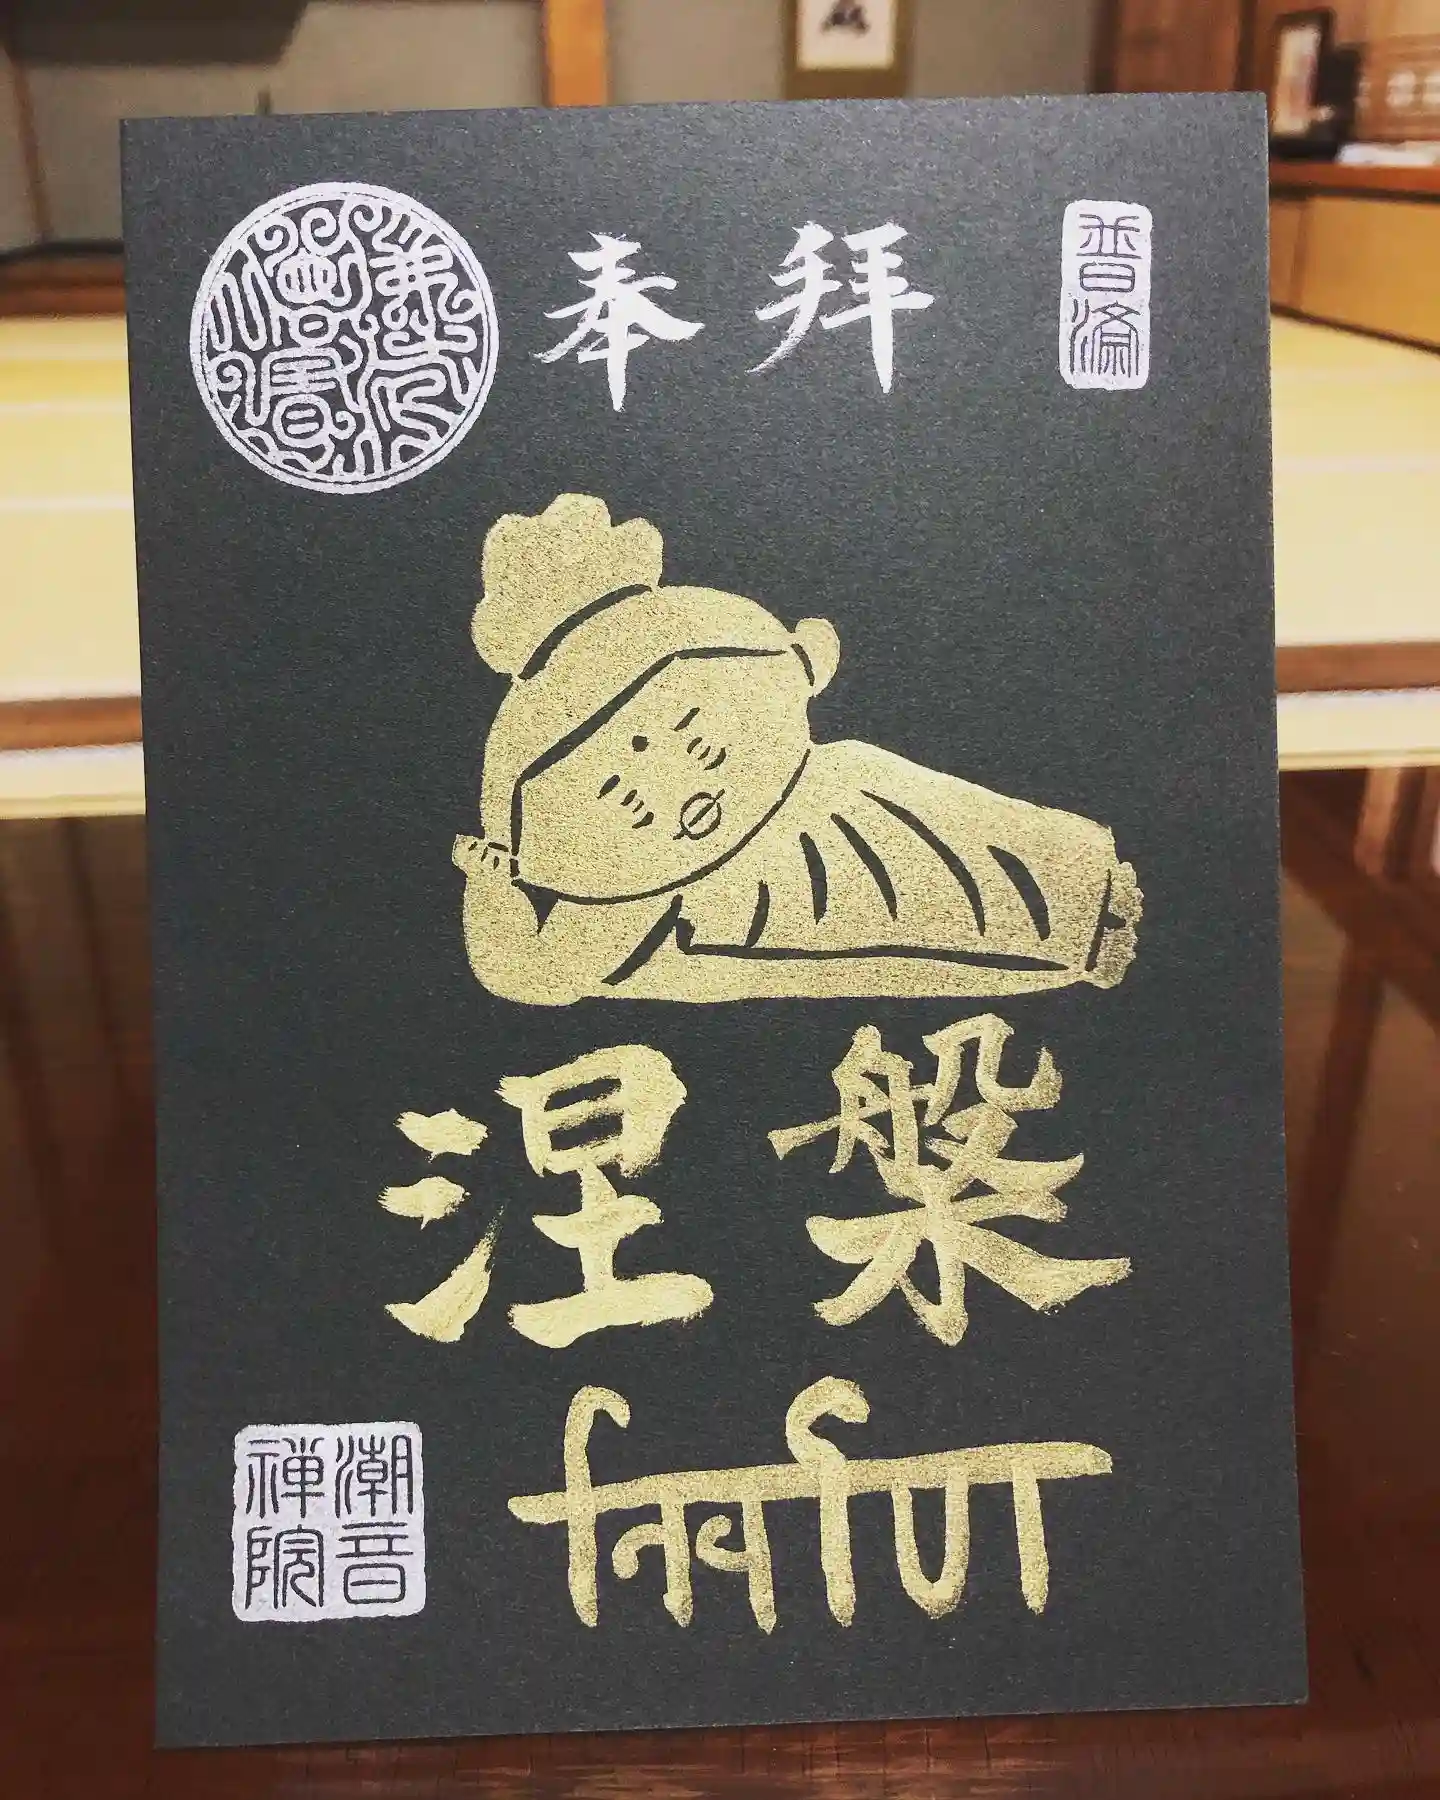 奉拝
普済
涅槃
निर्वाण
潮音
禅院